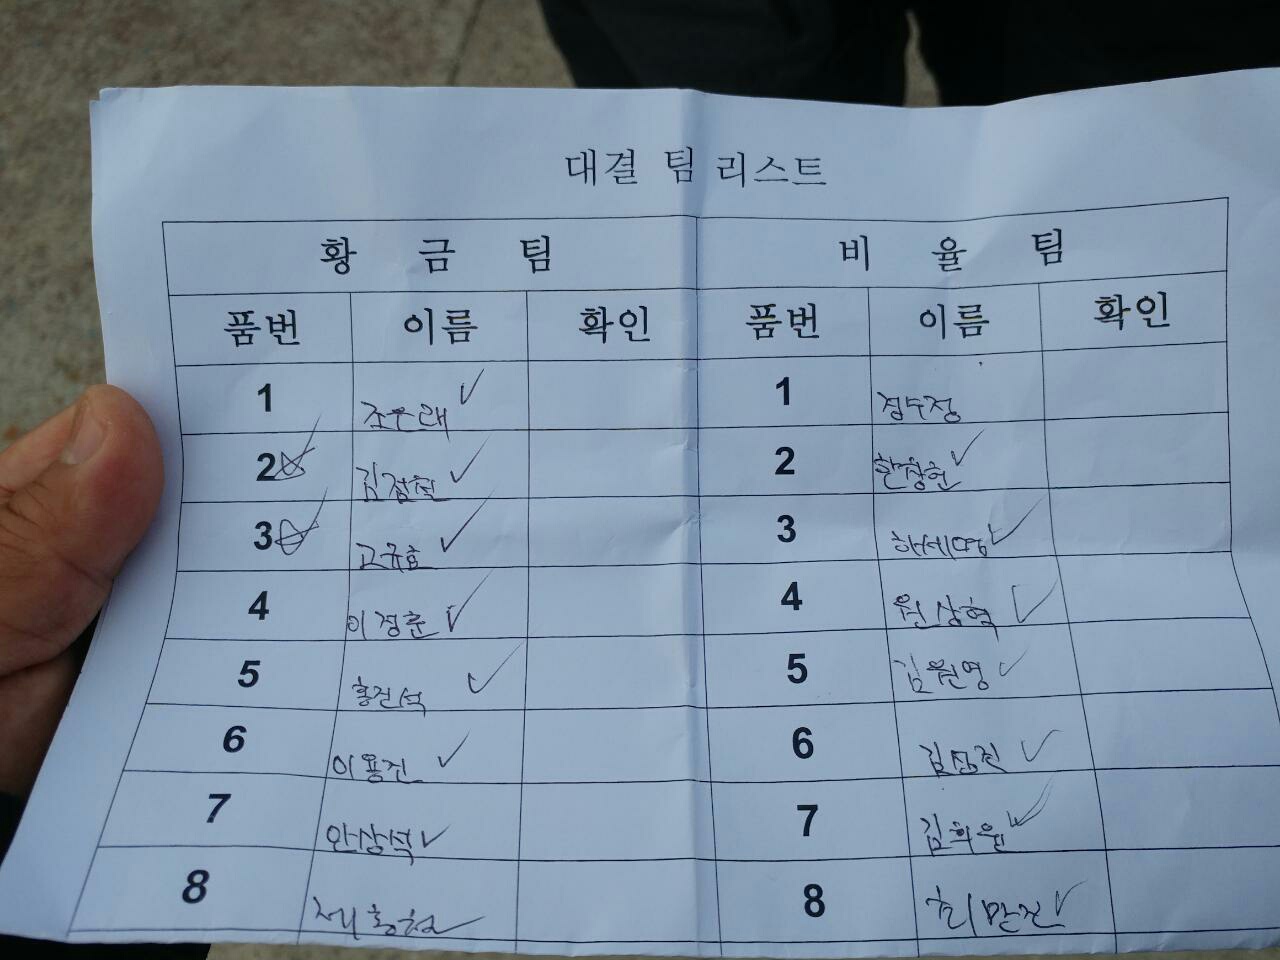 대결 팀 리스트
황 금 팀 비 율 팀
품번 이름 확인 품번 이름 확인
1 조은래 1 정수정
2 김점혁 2 한창헌
3 고규효 3 하세명
4 이정훈 4 원상혁
5 홍진석 5 김원영
6 이용진 6 김
7 안상석 7 김희원
8 8